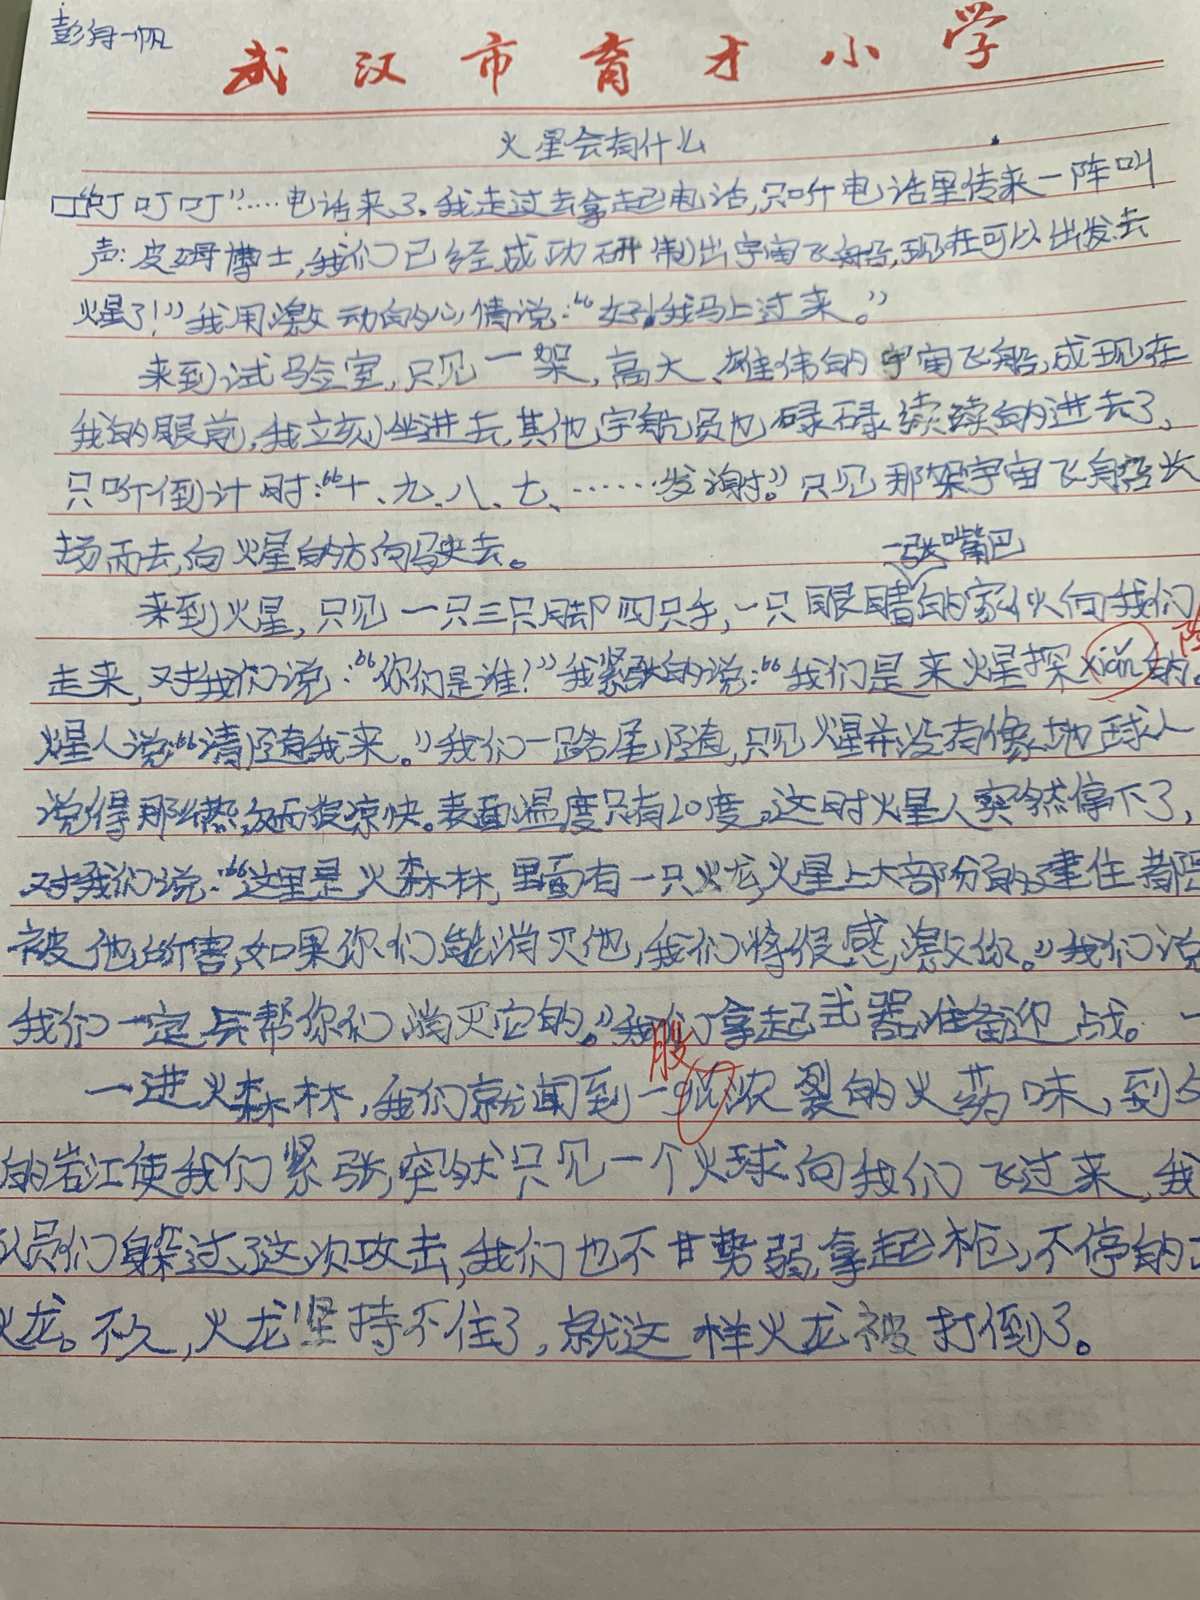 彭舟一帆
武汉市育才小学
火星会有什么
“叮叮叮”……电话来了。我走过去拿起电话,只听电话里传来一阵叫
声:皮姆博士,我们已经成功研制出宇宙飞船,现在可以出发去
火星了!”我用激动的心情说:“好!我马上过来。”
来到试验室,只见一架,高大、雄伟的宇宙飞船,成现在
我的眼前,我立刻坐进去,其他宇航员也碌碌续续的进去了,
只听倒计时:“十、九、八、七、……发谢。”只见那架宇宙飞船长
扬而去,向火星的方向驶去。
一张嘴巴
来到火星,只见一只三只脚四只手,一只眼睛的家伙向我们
走来,对我们说:“你们是谁!”我紧张的说:“我们是来火星探xiǎn的。
火星人说:“请随我来。”我们一路尾随,只见火星并没有像地球人
说得那么热,反而很凉快。表面温度只有20度。这时火星人突然停下了,
对我们说:“这里是火森林,里面有一只火龙,火星上大部份的建住都
被他的害,如果你们能消灭他,我们将很感激你。”我们说
我们一定会帮你们消灭它的。”我们拿起武器准备迎战。
股
一进火森林,我们就闻到一浓裂的火药味,到
的岩江使我们紧张,突然只见一个火球向我们飞过来,我
队员们躲过了这次攻击,我们也不甘势弱,拿起枪,不停的
火龙。不久,火龙坚持不住了,就这样火龙被打倒了。